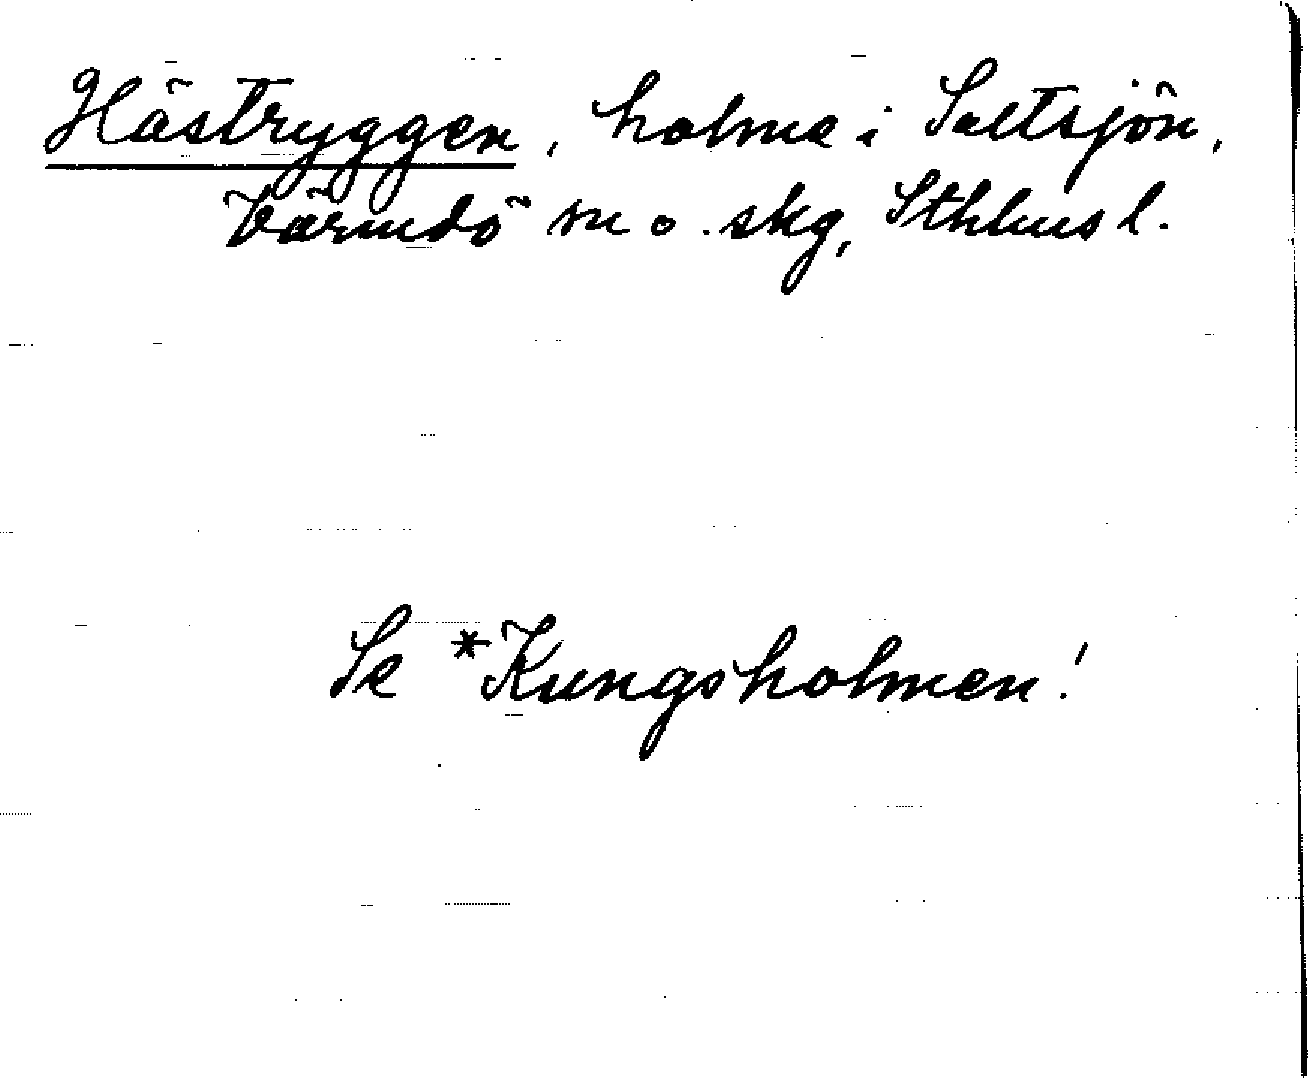 Hästryggen, holme i Saltsjön,
Värmdö sn o. skg, Sthlms l.
Se *Kungsholmen!